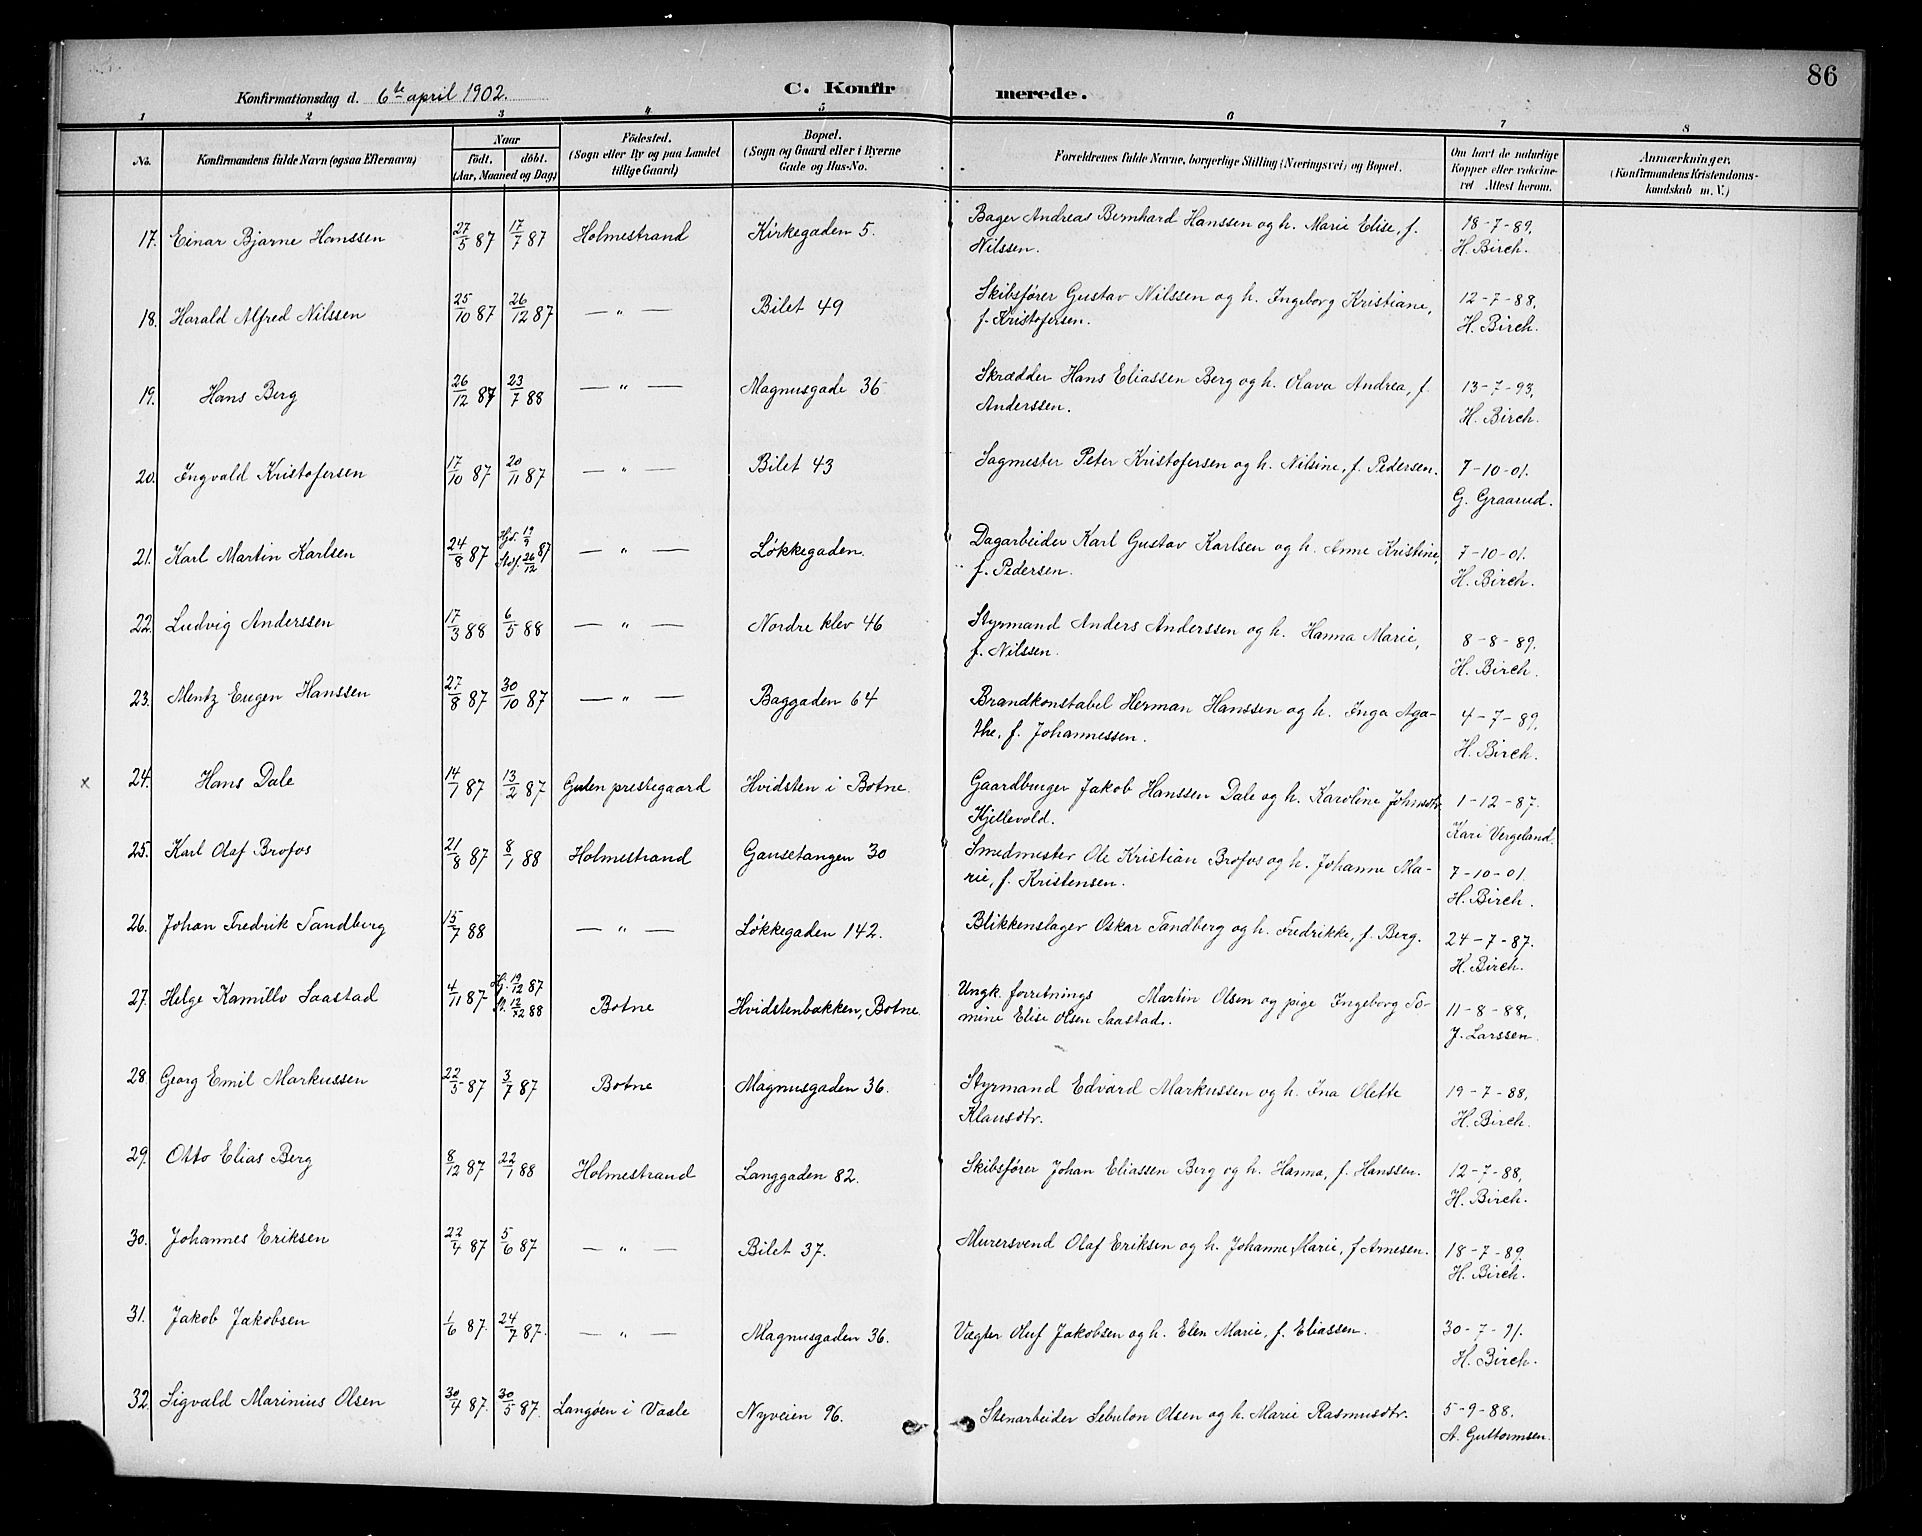 86
Konfirmationsdag d. 6te april 1902.
C. Konfirmerede.
1 2 3 4 5 6 7 8
No.
Konfirmandens fulde Navn (ogsaa Efternavn)
Naar
födt. döbt.
(Aar, Maaned og Dag)
Födested.
(Sogn eller By og paa Landet
tillige Gaard)
Bopæl.
(Sogn og Gaard eller i Byerne
Gade og Hus-No.
Forældrenes fulde Navne, borgerlige Stilling (Næringsvei) og Bopæl.
Om havt de naturlige
Kopper eller vakcine-
ret Attest herom.
Anmærkninger.
(Konfirmandens Kristendoms-
kundskab m. V.)
17. Einar Bjarne Hanssen 27/5 87 17/7 87 Holmestrand Kirkegaden 5. Bager Andreas Bernhard Hanssen og h. Marie Elise, f. 18-7-89,
Nilssen. H. Birch.
18. Harald Alfred Nilssen 25/10 87 26/12 87 — " — Bilet 49 Skibsfører Gustav Nilssen og h. Ingeborg Kristiane, 12-7-88,
f. Kristofersen. H. Birch.
19. Hans Berg 26/12 87 23/7 88 — " — Magnusgade 36 Skrædder Hans Eliassen Berg og h. Olava Andrea, f. 13-7-93,
Anderssen. H. Birch.
20. Ingvald Kristofersen 17/10 87 20/11 87 — " — Bilet 43 Sagmester Peter Kristofersen og h. Nilsine, f. Pedersen. 7-10-01.
G. Graarud.
21. Karl Martin Karlsen 24/8 87 Hjd. 19/9 Stdf. 26/12 87 — " — Løkkegaden. Dagarbeider Karl Gustav Karlsen og h. Anne Kristine, 7-10-01.
f. Pedersen. H. Birch.
22. Ludvig Anderssen 17/3 88 6/5 88 — " — Nordre klev 46 Styrmand Anders Anderssen og h. Hanna Marie, 8-8-89.
f. Nilssen. H. Birch.
23. Mentz Eugen Hanssen 27/8 87 30/10 87 — " — Baggaden 64 Brandkonstabel Herman Hanssen og h. Inga Aga- 4-7-89,
the, f. Johannessen. H. Birch.
x 24. Hans Dale 14/1 87 13/2 87 Gulen prestegaard Hvidsten i Botne. Gaardbruger Jakob Hanssen Dale og h. Karoline Johnsdtr. 1-12-87.
Kjellevold. Kari Vergeland.
25. Karl Olaf Brofos 21/8 87 8/1 88 Holmestrand Gausetangen 30 Smedmester Ole Kristian Brofos og h. Johanne Ma- 7-10-01.
rie, f. Kristensen. H. Birch.
26. Johan Fredrik Tandberg 15/7 88 — " — Løkkegaden 142. Blikkenslager Oskar Tandberg og h. Fredrikke, f. Berg. 24-7-87.
H. Birch.
27. Helge Kamillo Saastad 4/11 87 Hj. 19/12 87 St. 12/12 88 Botne Hvidstenbakken, Botne. Ungk. forretnings Martin Olsen og pige Ingeborg To- 11-8-88,
mine Elise Olsen Saastad. J. Larssen.
28. Georg Emil Markussen 22/5 87 3/7 87 Botne Magnusgaden 36. Styrmand Edvard Markussen og h. Ina Olette 19-7-88,
Klausdtr. H. Birch.
29. Otto Elias Berg 8/12 87 22/1 88 Holmestrand Langgaden 82. Skibsfører Johan Eliassen Berg og h. Hanna, f. Hanssen. 12-7-88,
H. Birch.
30. Johannes Eriksen 22/4 87 5/6 87 — " — Bilet 37. Murersvend Olaf Eriksen og h. Johanne Marie, f Arnesen. 18-7-89.
H. Birch.
31. Jakob Jakobsen 1/6 87. 24/7 87. — " — Magnusgaden 36. Vægter Oluf Jakobsen og h. Elen Marie, f. Eliassen. 30-7-91.
H. Birch.
32. Sigvald Marinius Olsen 30/4 87. 30/5 87. Langøen i Vaale Nyveien 96. Stenarbeider Sebulon Olsen og h. Marie Rasmusdtr. 5-9-88.
A. Guttormsen.